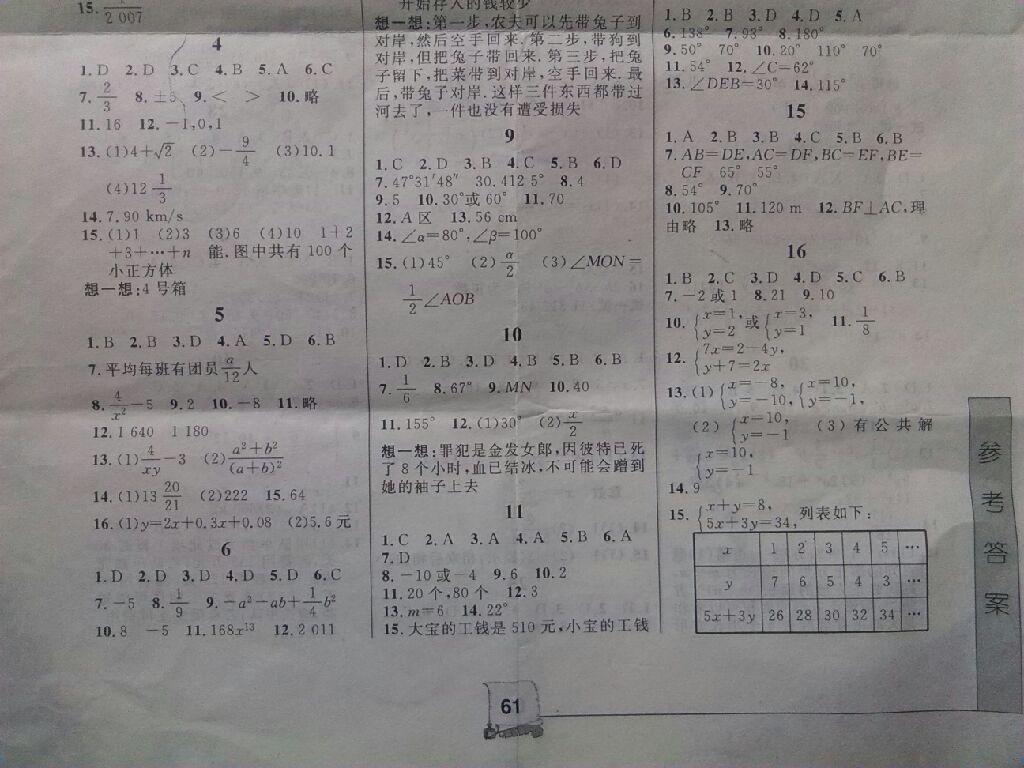 15. 2 007
4
1.D 2.D 3.C 4.B 5.A 6.C
7. 2/3 8. ±5 9.< > 10.略
11.16 12.−1,0,1
13.(1)4+√2 (2)−9/4 (3)10.1
(4)12 1/3
14.7.90 km/s
15.(1)1 (2)3 (3)6 (4)10 1+2
+3+…+n 能,图中共有100个
小正方体
想一想:4号箱
5
1.B 2.B 3.D 4.A 5.D 6.B
7.平均每班有团员a/12人
8. 4/x²−5 9.2 10.−8 11.略
12.1 640 1 180
13.(1)4/xy−3 (2)(a²+b²)/(a+b)²
14.(1)13 20/21 (2)222 15.64
16.(1)y=2x+0.3x+0.08 (2)5.6元
6
1.D 2.D 3.D 4.D 5.D 6.C
7.−5 8. 1/9 9.−a²−ab+1/4b²
10.8 −5 11.168x¹³ 12.2 011
开始存入的钱较少
想一想:第一步,农夫可以先带兔子到
对岸,然后空手回来.第二步,带狗到
对岸,但把兔子带回来.第三步,把兔
子留下,把菜带到对岸,空手回来.最
后,带兔子对岸.这样三件东西都带过
河去了,一件也没有遭受损失
9
1.C 2.D 3.B 4.C 5.B 6.D
7.47°31′48″ 30.412 5° 8.4
9.5 10.30°或60° 11.70
12.A区 13.56 cm
14.∠α=80°,∠β=100°
15.(1)45° (2)α/2 (3)∠MON=
1/2∠AOB
10
1.D 2.B 3.D 4.B 5.B 6.B
7. 1/6 8.67° 9.MN 10.40
11.155° 12.(1)30° (2)x/2
想一想:罪犯是金发女郎,因彼特已死
了8个小时,血已结冰,不可能会蹭到
她的袖子上去
11
1.C 2.A 3.A 4.A 5.B 6.A
7.D
8.−10或−4 9.6 10.2
11.20个,80个 12.3
13.m=6 14.22°
15.大宝的工钱是510元,小宝的工钱
1.B 2.B 3.D 4.D 5.A
6.138° 7.98° 8.180°
9.50° 70° 10.20° 110° 70°
11.54° 12.∠C=62°
13.∠DEB=30° 14.115°
15
1.A 2.B 3.B 4.C 5.B 6.B
7.AB=DE,AC=DF,BC=EF,BE=
CF 65° 55°
8.54° 9.70°
10.105° 11.120 m 12.BF⊥AC,理
由略 13.略
16
1.B 2.C 3.D 4.D 5.C 6.B
7.−2或1 8.21 9.10
10.{x=1, y=2 或{x=3, y=1 11. 1/8
12.{7x=2−4y, y+7=2x
13.(1){x=−8, y=−10, {x=10, y=−1,
(2){x=10, y=−1 (3)有公共解
{x=10, y=−1
14.9
15.{x+y=8, 5x+3y=34, 列表如下:
x 1 2 3 4 5 …
y 7 6 5 4 3 …
5x+3y 26 28 30 32 34 …
参考答案
61